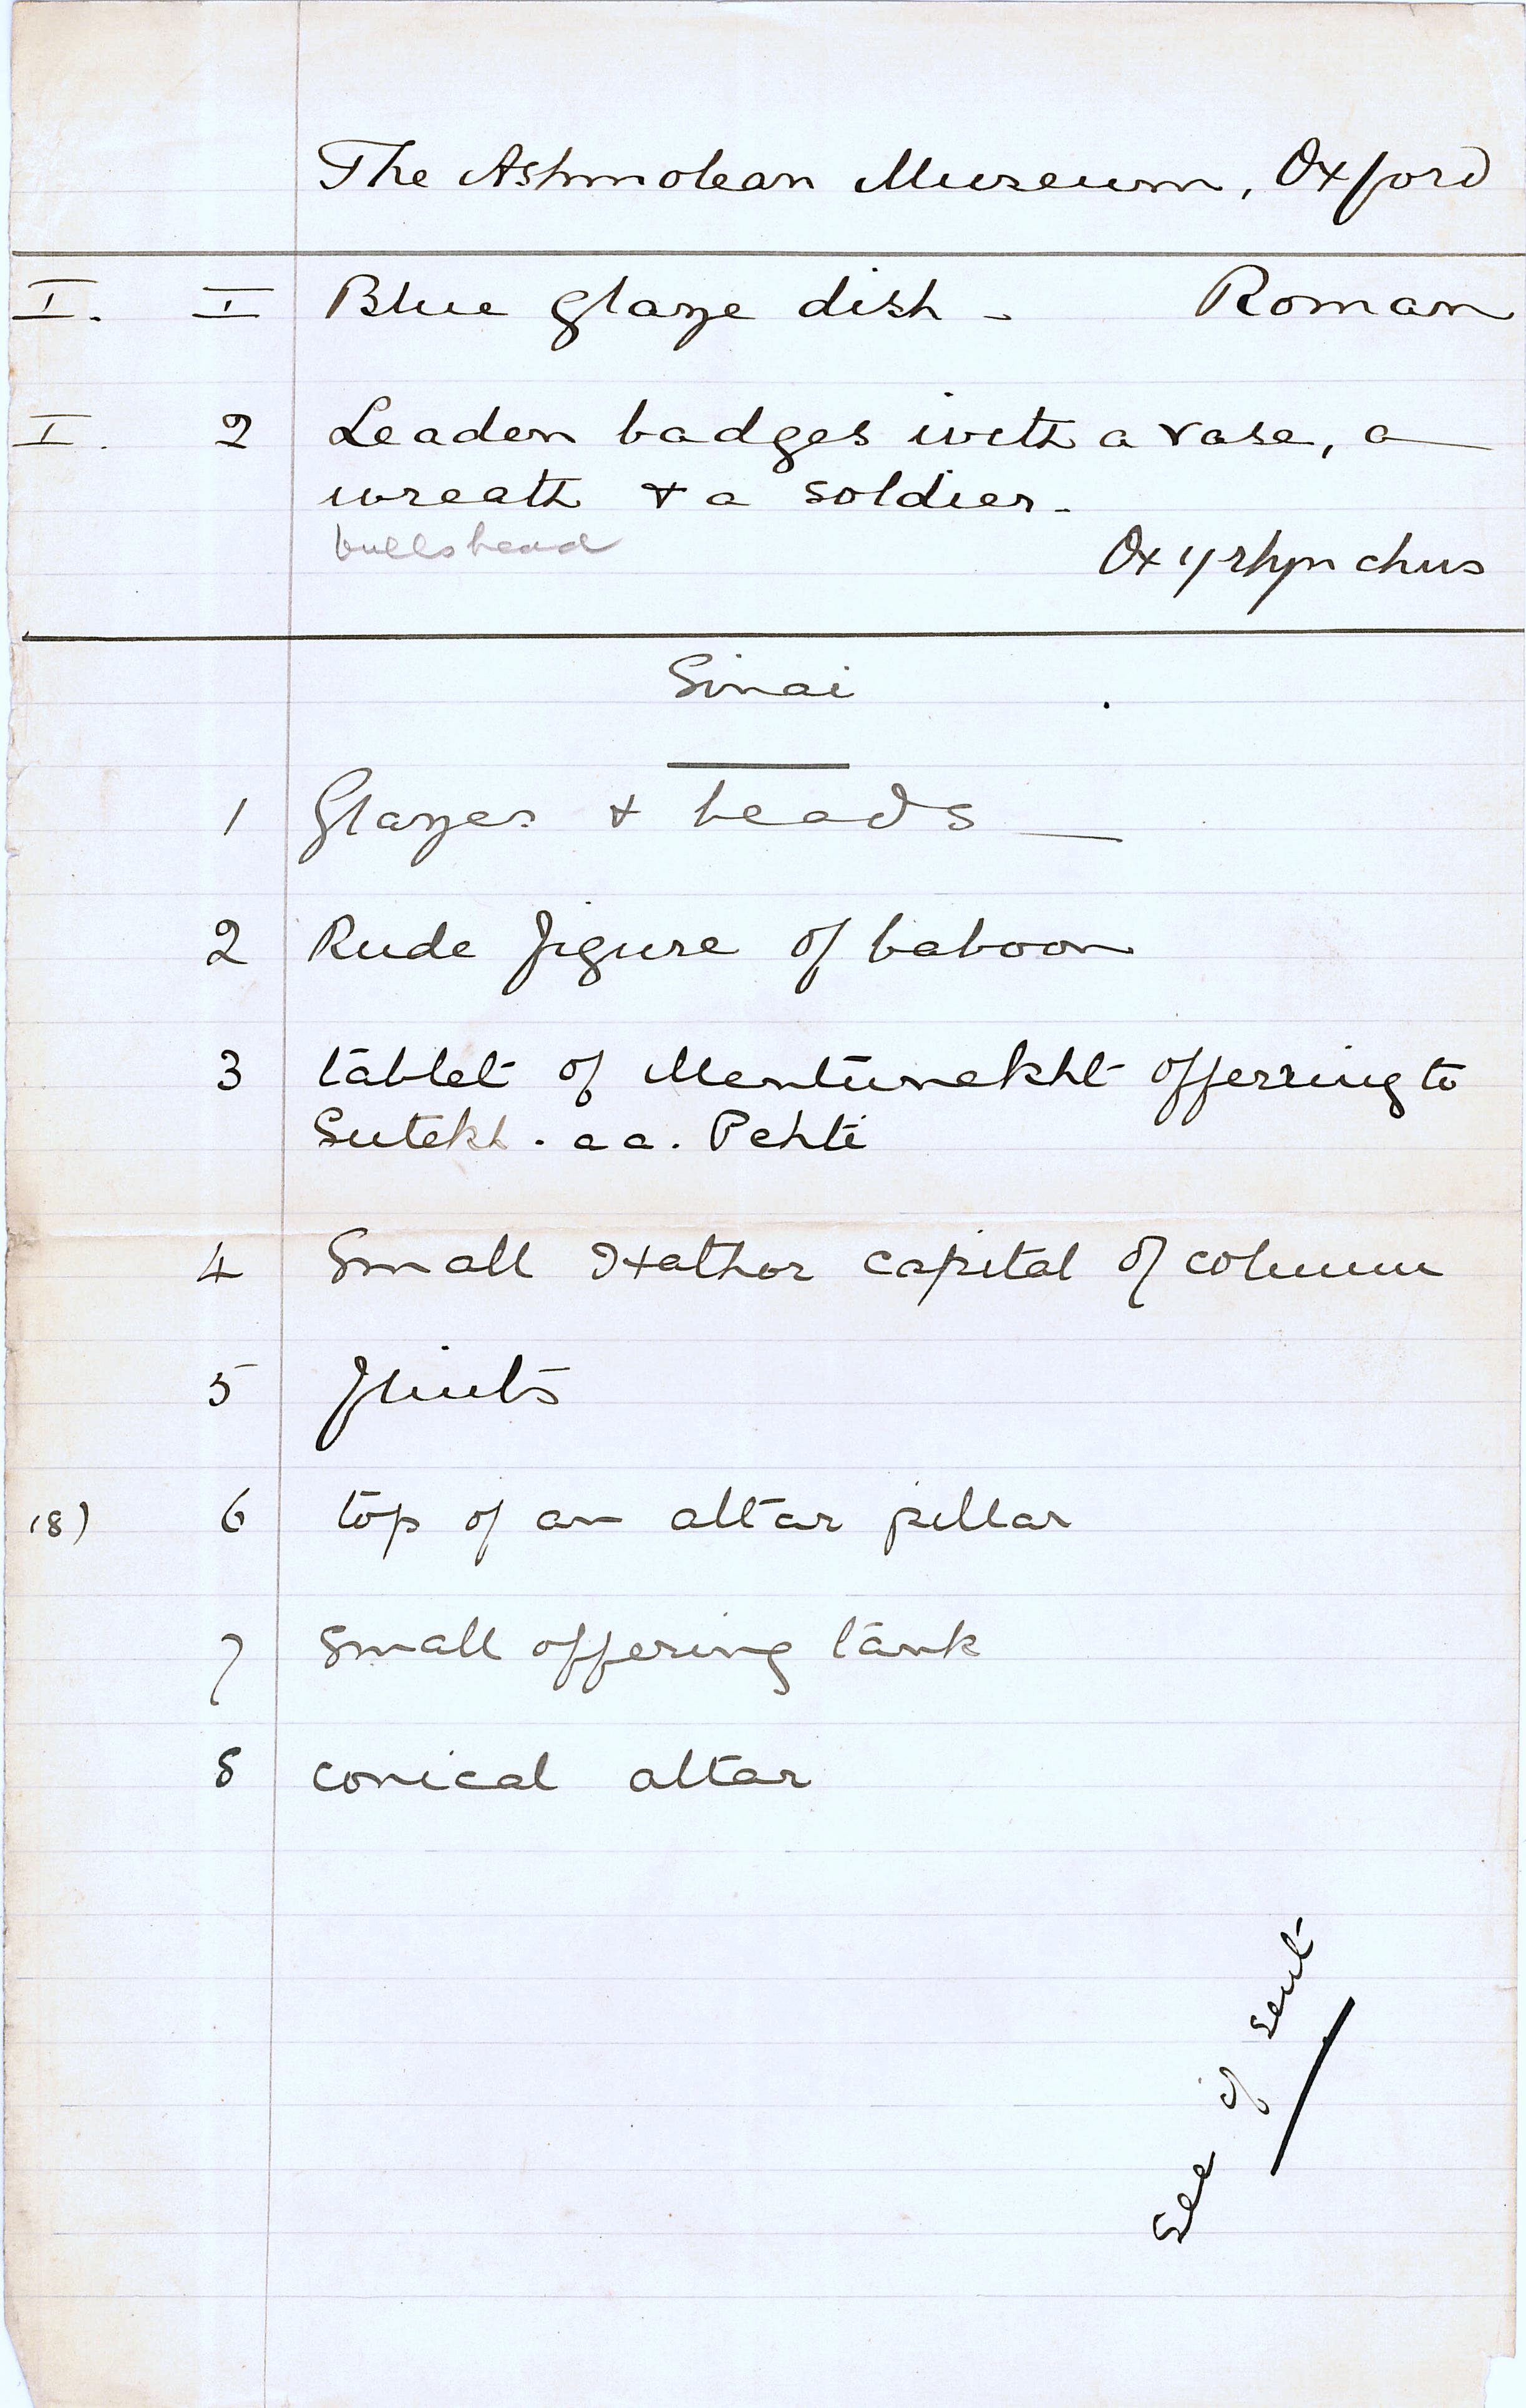 The Ashmolean Museum, Oxford
I. I Blue glaze dish - Roman
I. 2 Leaden badges with a vase, a
wreath & a soldier.
bullshead
Oxyrhynchus
Sinai
1 Glazes & beads
2 Rude figure of baboon
3 tablet of Mentunekht offerring to
Sutekh . aa. Pehti
4 Small Hathor capital of column
5 flints
(8) 6 top of an altar pillar
7 small offering tank
8 conical altar
See if sent